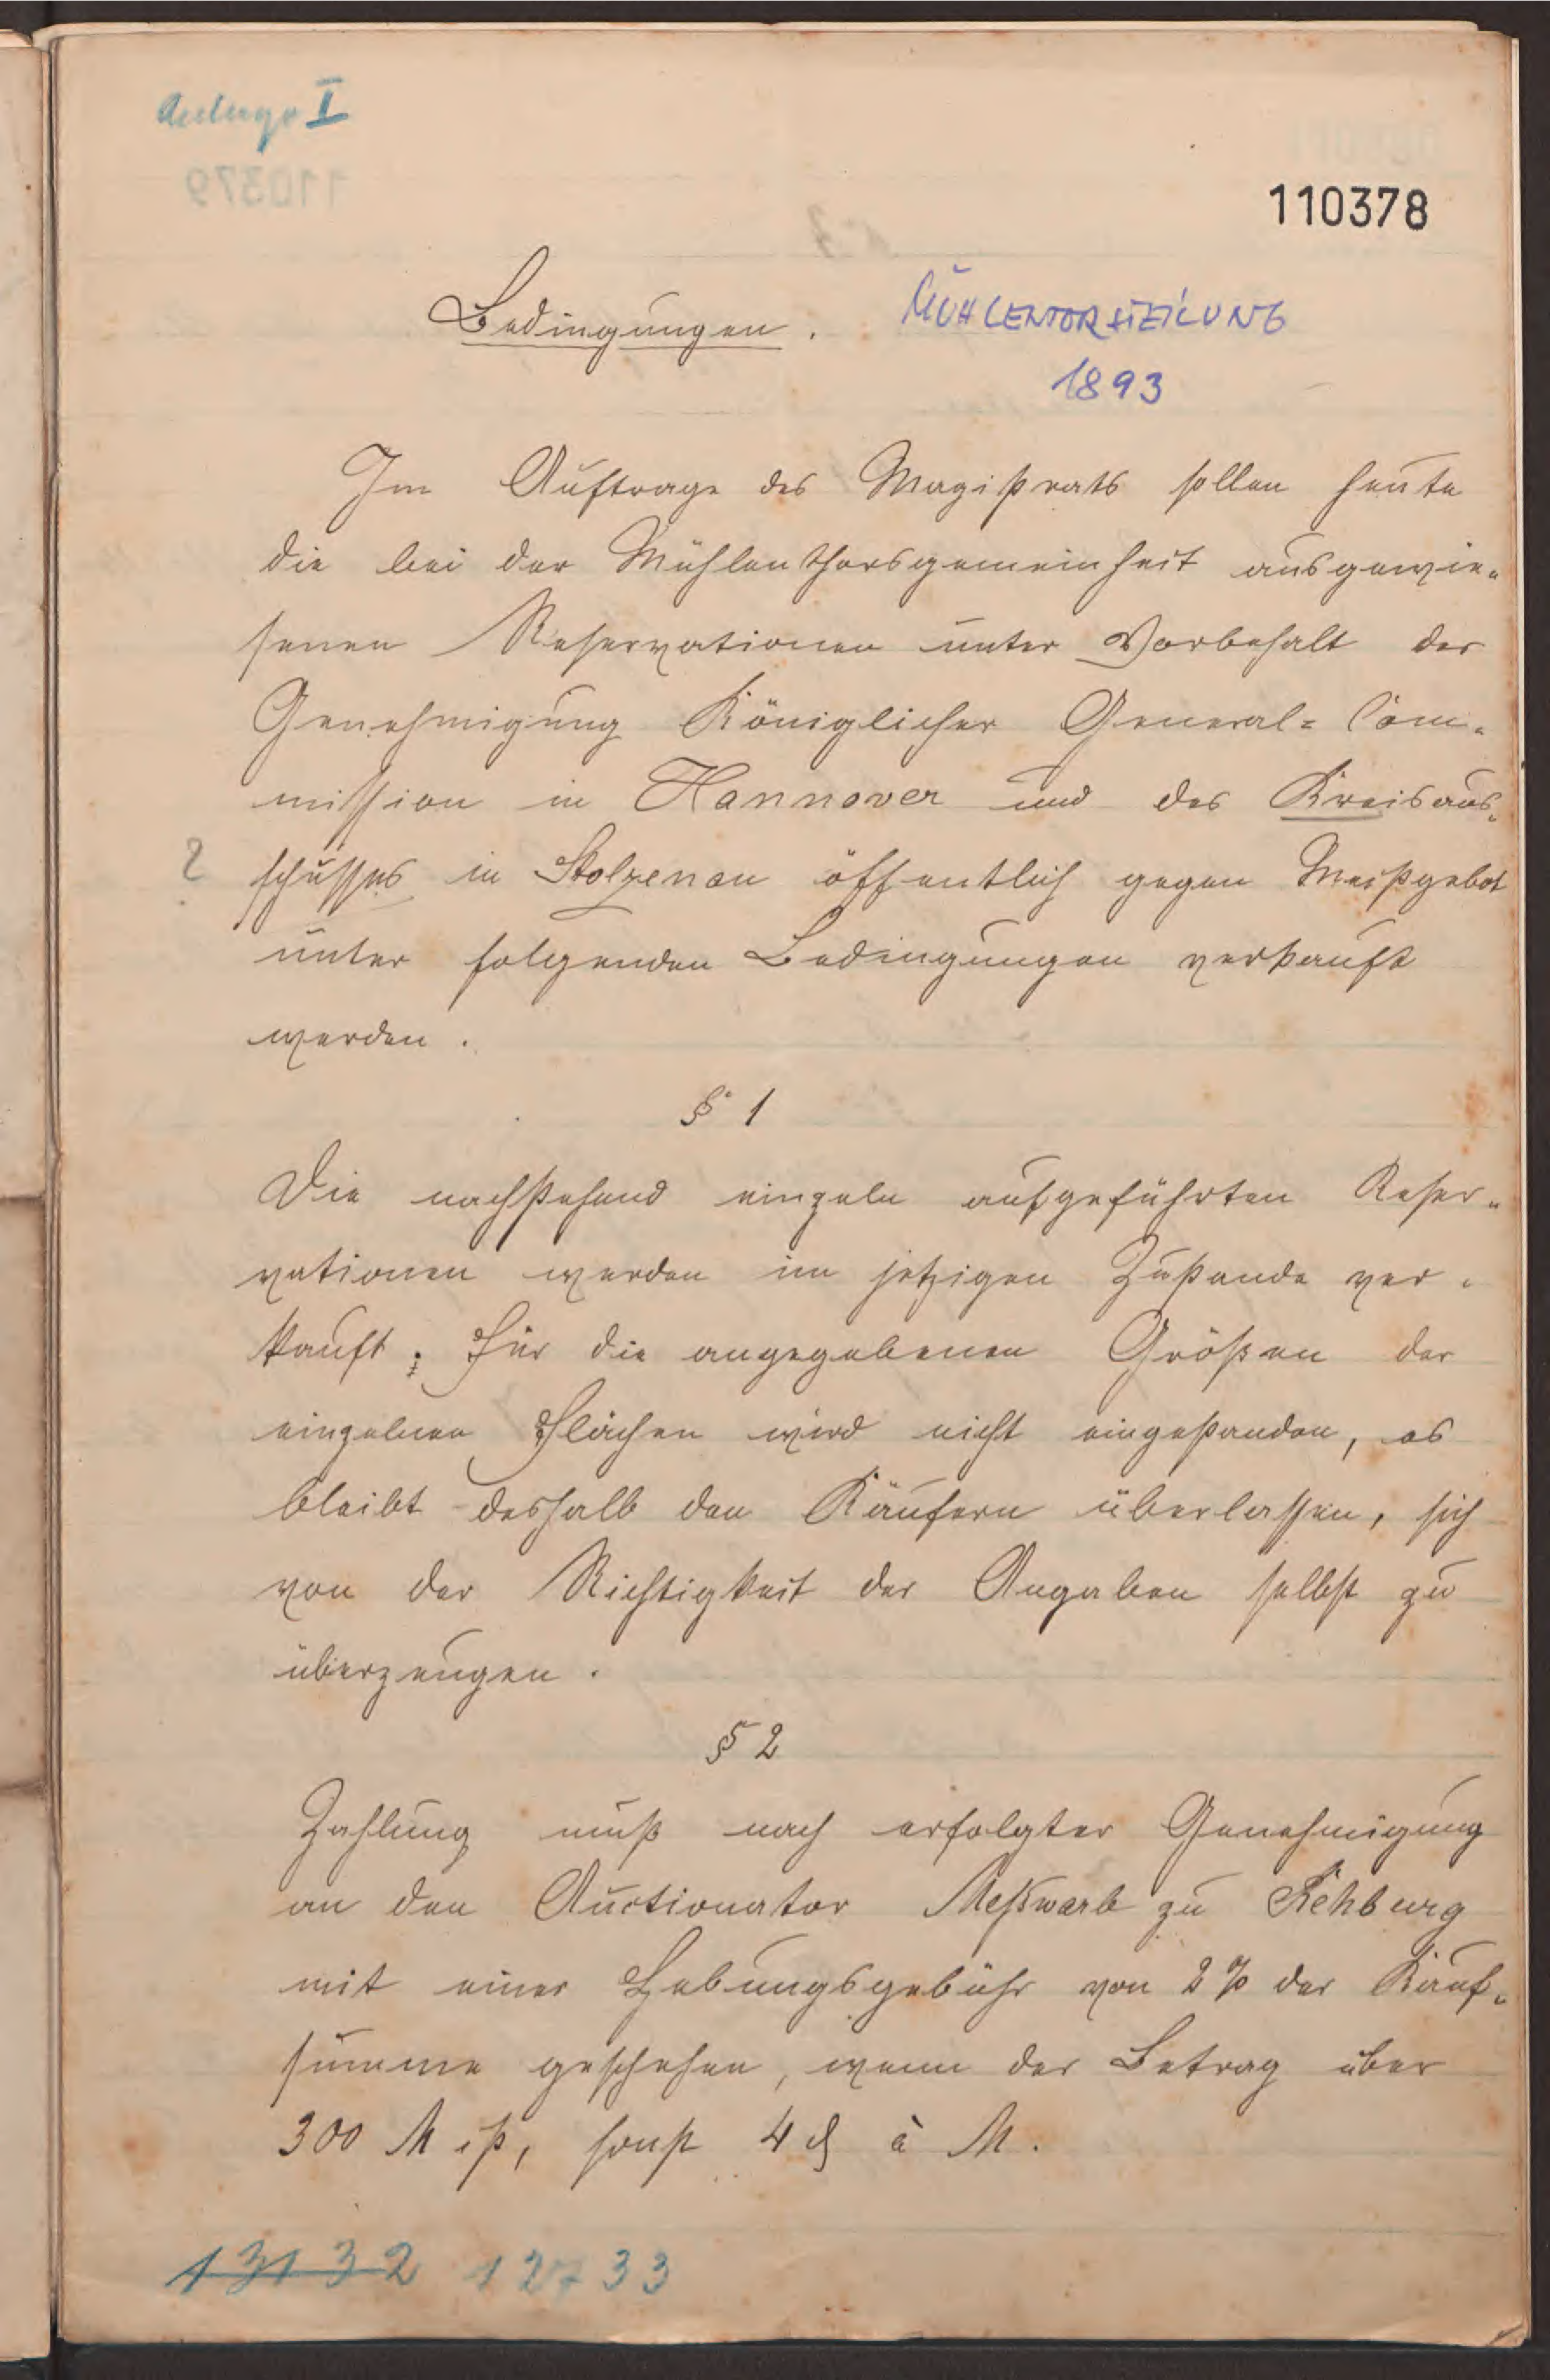 Anlage I
110378
Bedingungen.
MÜHLENTORSTEILUNG
1893
Im Auftrage des Magistrats sollen heute
die bei der Mühlenthorsgemeinheit ausgewie-
senen Reservationen unter Vorbehalt der
Genehmigung Königlicher General-Com-
mission in Hannover und des Kreisaus-
? schusses in Stolzenau öffentlich gegen Meistgebot
unter folgenden Bedingungen verkauft
werden.
§ 1
Die nachstehend einzeln aufgeführten Reser-
vationen werden im jetzigen Zustande ver-
kauft; für die angegebenen Größen der
einzelnen Flächen wird nicht eingestanden, es
bleibt deshalb den Käufern überlassen, sich
von der Richtigkeit der Angaben selbst zu
überzeugen.
§ 2
Zahlung muß nach erfolgter Genehmigung
an den Auctionator Meßwarb zu Rehburg
mit einer Hebungsgebühr von 2 % der Kauf-
summe geschehen, wenn der Betrag über
300 M ist, sonst 4 ₰ à M.
13132 12733